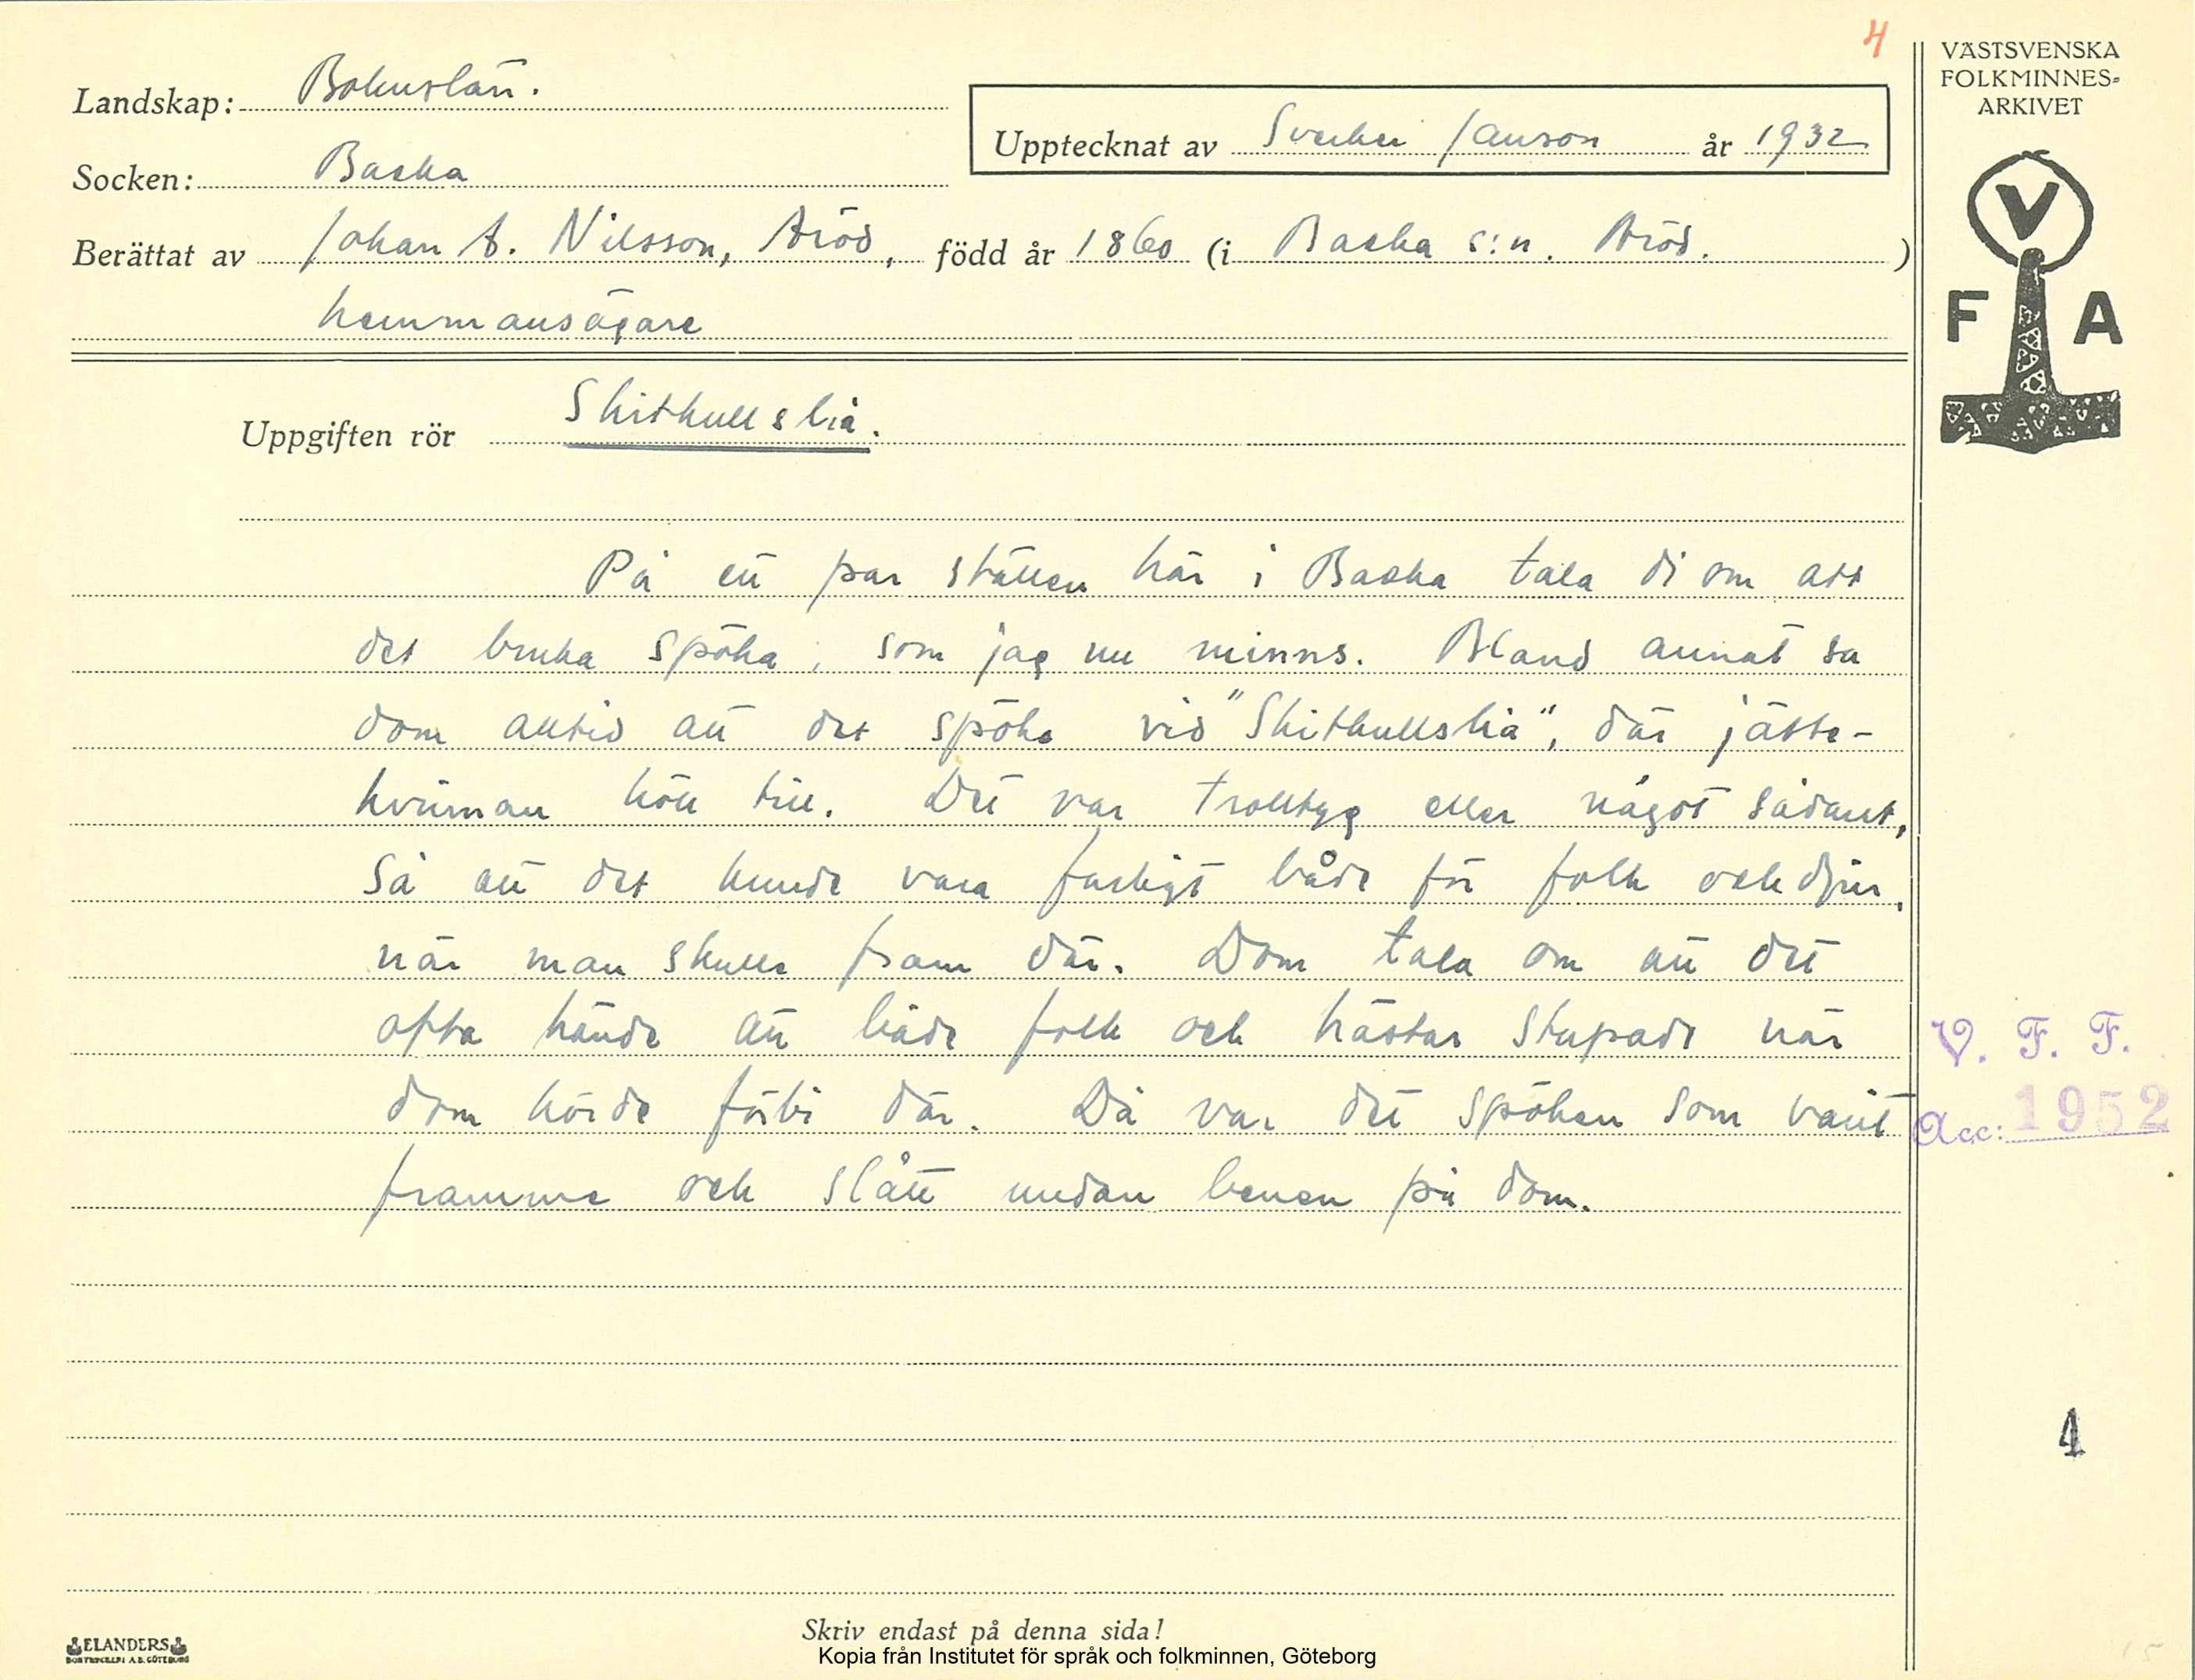 4
VÄSTSVENSKA
FOLKMINNES=
ARKIVET
Landskap: Bohuslän.
Upptecknat av Sverker Janson år 1932
Socken: Backa
Berättat av Johan A. Nilsson, Aröd, född år 1860 (i Backa s:n. Aröd. )
hemmansägare
V
F A
Uppgiften rör Skitkullsliá.
På ett par ställen här i Backa tala di om att
det bruka spöka, som jag nu minns. Bland annat sa
dom alltid att det spöka vid "Skitkullsliá", där jätte-
kvinnan höll till. Det var trolltyg eller något sådant,
så att det kunde vara farligt både för folk och djur,
när man skulle fram där. Dom tala om att det
ofta hände att både folk och hästar stupade när
dom körde förbi där. Då var det spöken som varit
framme och slått undan benen på dom.
V. F. F.
Acc: 1952
4
Skriv endast på denna sida!
ELANDERS
BOKTRYCKERI A.B. GÖTEBORG
Kopia från Institutet för språk och folkminnen, Göteborg